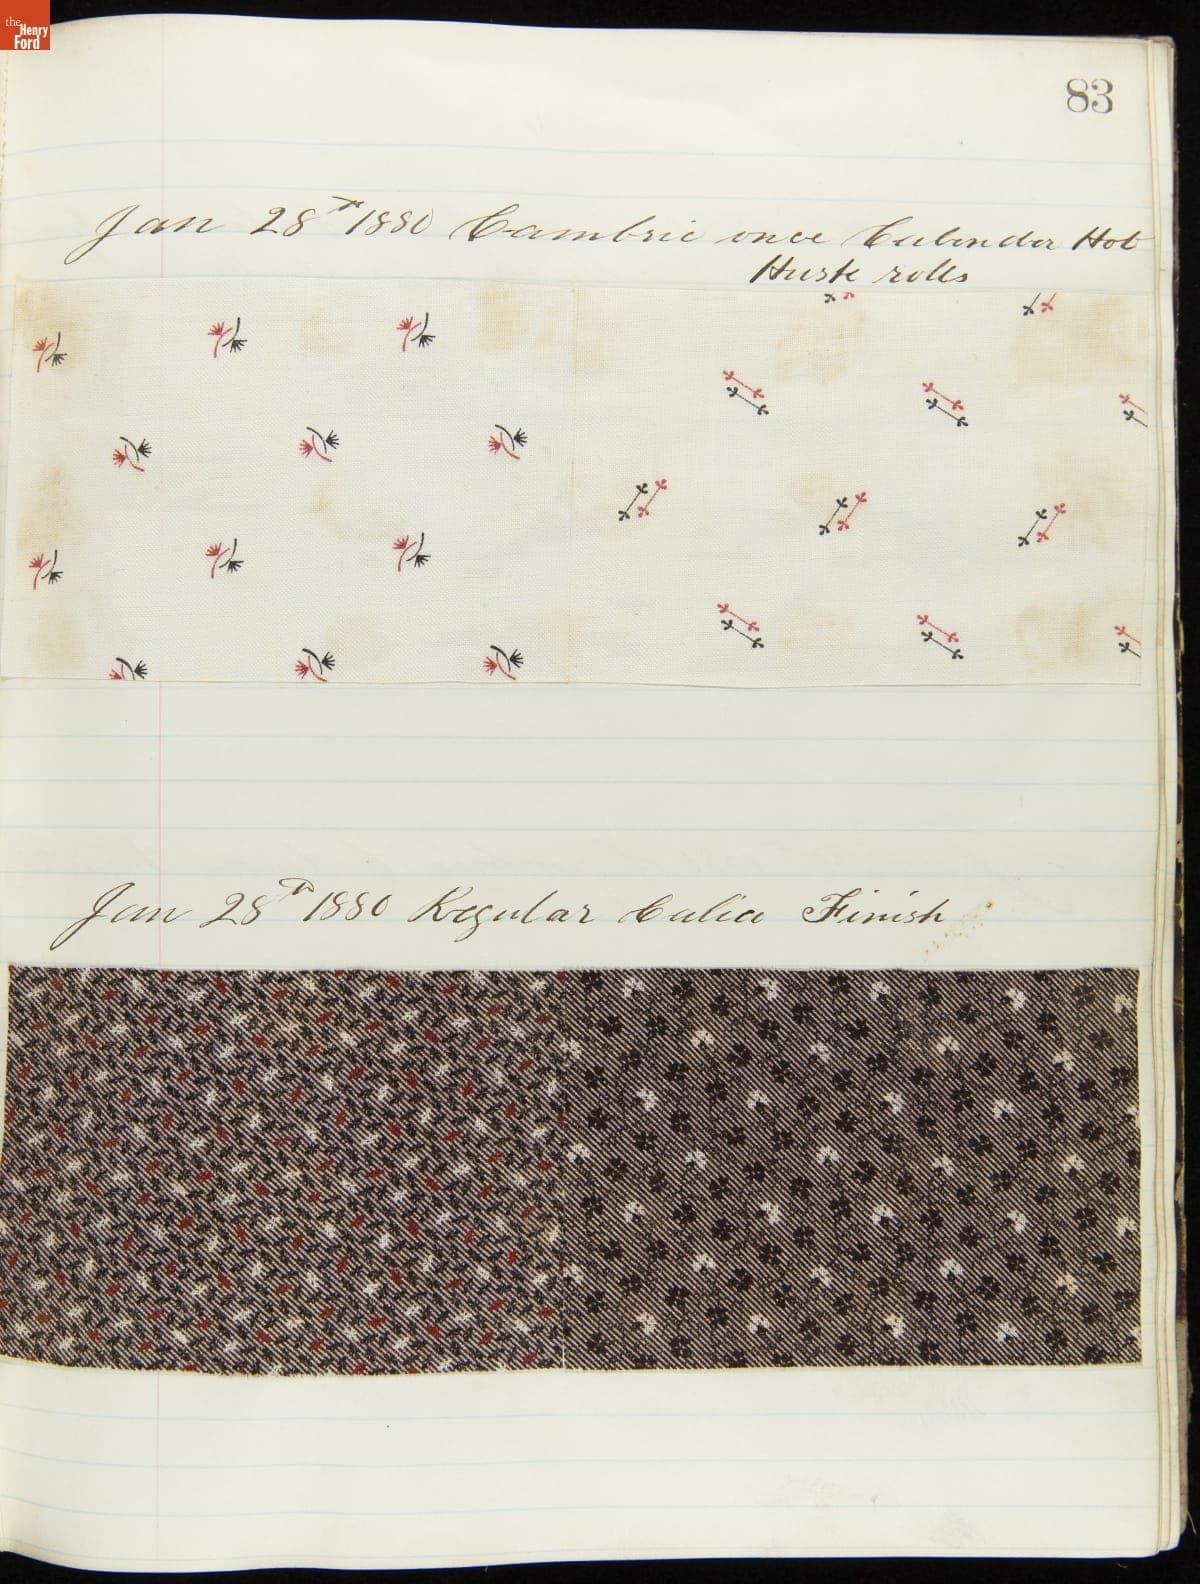 the
Henry
Ford
83
Jan 28th 1880 Cambric once Calender Hot
Husk rolls
Jan 28th 1880 Regular Calico Finish